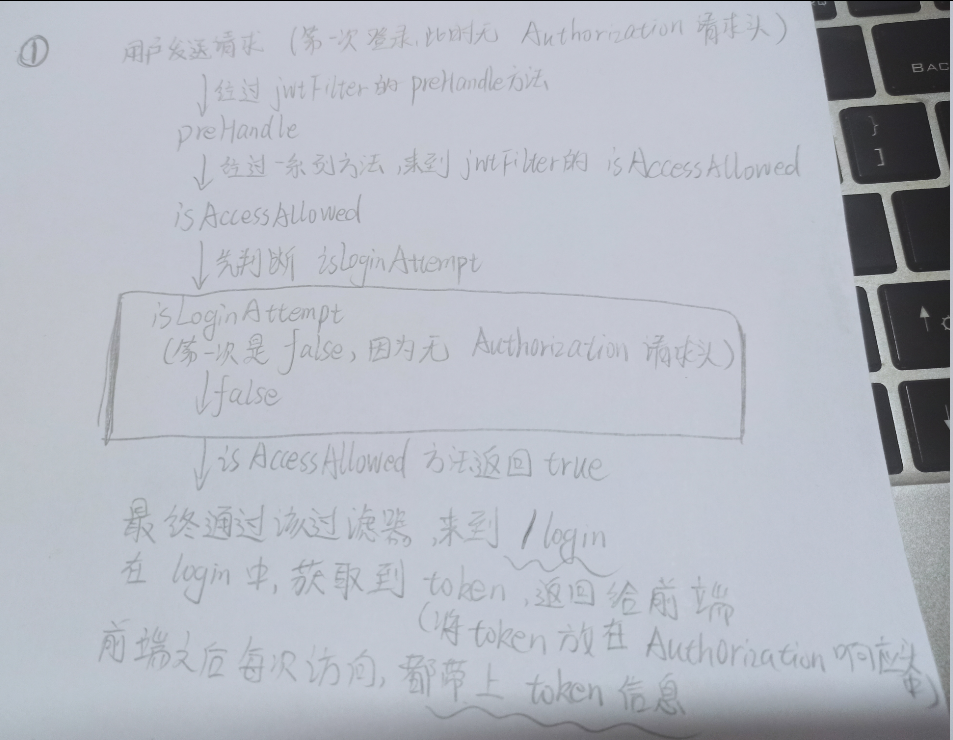 ① 用户发送请求（第一次登录,此时无 Authorization 请求头）
↓经过 jwtFilter的 preHandle方法
preHandle
↓经过一系列方法,来到 jwtFilter的 isAccessAllowed
isAccessAllowed
↓先判断 isLoginAttempt
isLoginAttempt
（第一次是 false, 因为无 Authorization 请求头）
↓false
↓isAccessAllowed 方法返回 true
最终通过该过滤器,来到 /login
在 login 中, 获取到 token ,返回给前端
（将 token 放在 Authorization 响应头中）
前端之后每次访问, 都带上 token 信息
BAC
}
]